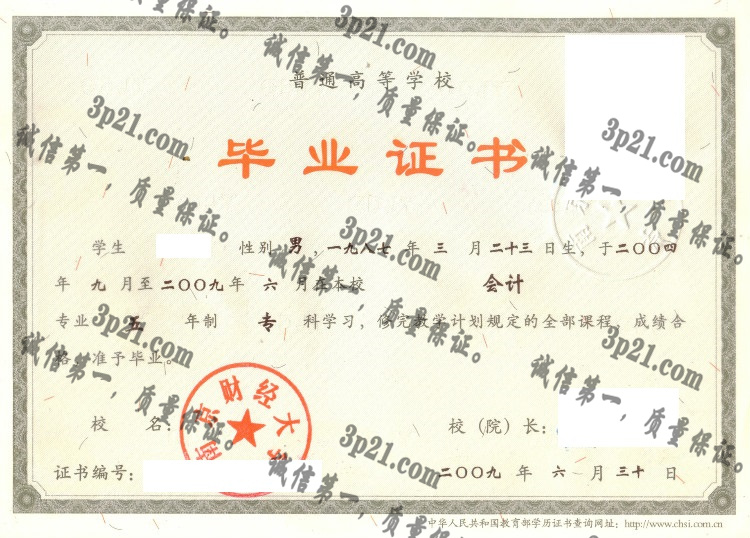 普通高等学校
毕业证书
学生 性别 男 ，一九八七 年 三 月 二十三 日生，于二〇〇四
年 九 月至二〇〇九年 六 月在本校 会计
专业 五 年制 专 科学习，修完教学计划规定的全部课程，成绩合
格，准予毕业。
校 名： 校（院）长：
南京财经大学
证书编号： 二〇〇九 年 六 月 三十 日
中华人民共和国教育部学历证书查询网址：http://www.chsi.com.cn
质量保证。
3p21.com
诚信第一，质量保证。
3p21.com
诚信第一，质量保证。
3p21.com
诚信第一，质量保证。
3p21.com
诚信第一，质量保证。
3p21.com
诚信第一，质量保证。
3p21.com
诚信第一，质量保证。
3p21.com
诚信第一，质量保证。